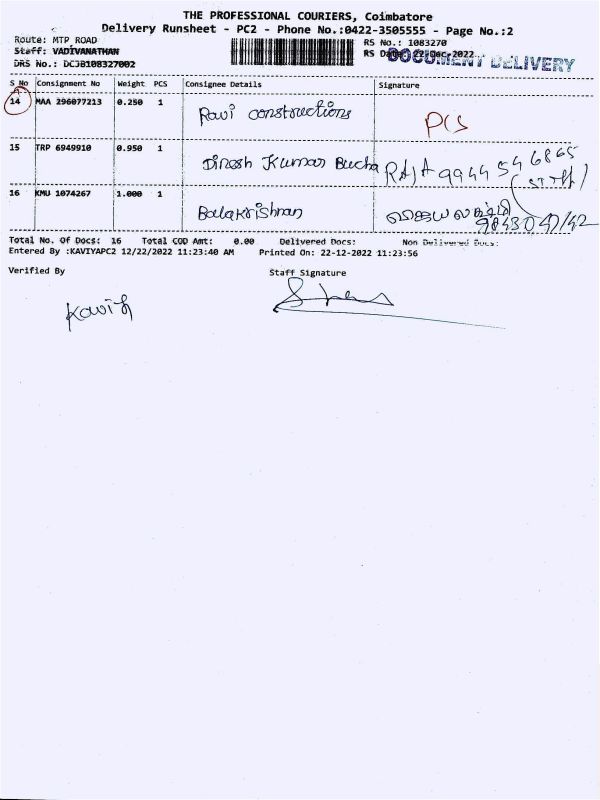 THE PROFESSIONAL COURIERS, Coimbatore
Delivery Runsheet - PC2 - Phone No.:0422-3505555 - Page No.:2
Route: MTP ROAD
RS No.: 1083270
Staff: VADIVANATHAN
RS Date: 22-Dec-2022
DOCUMENT DELIVERY
DRS No.: DCJB108327002
S No Consignment No Weight PCS Consignee Details Signature
14 MAA 296077213 0.250 1 Ravi constructions PCS
15 TRP 6949910 0.950 1 Dinesh Kumar Bucha RAJA 9944546865
(STAFF)
16 KMU 1074267 1.000 1 Balakrishnan
Total No. Of Docs: 16 Total COD Amt: 0.00 Delivered Docs: Non Delivered Docs:
Entered By :KAVIYAPC2 12/22/2022 11:23:40 AM Printed On: 22-12-2022 11:23:56
Verified By Staff Signature